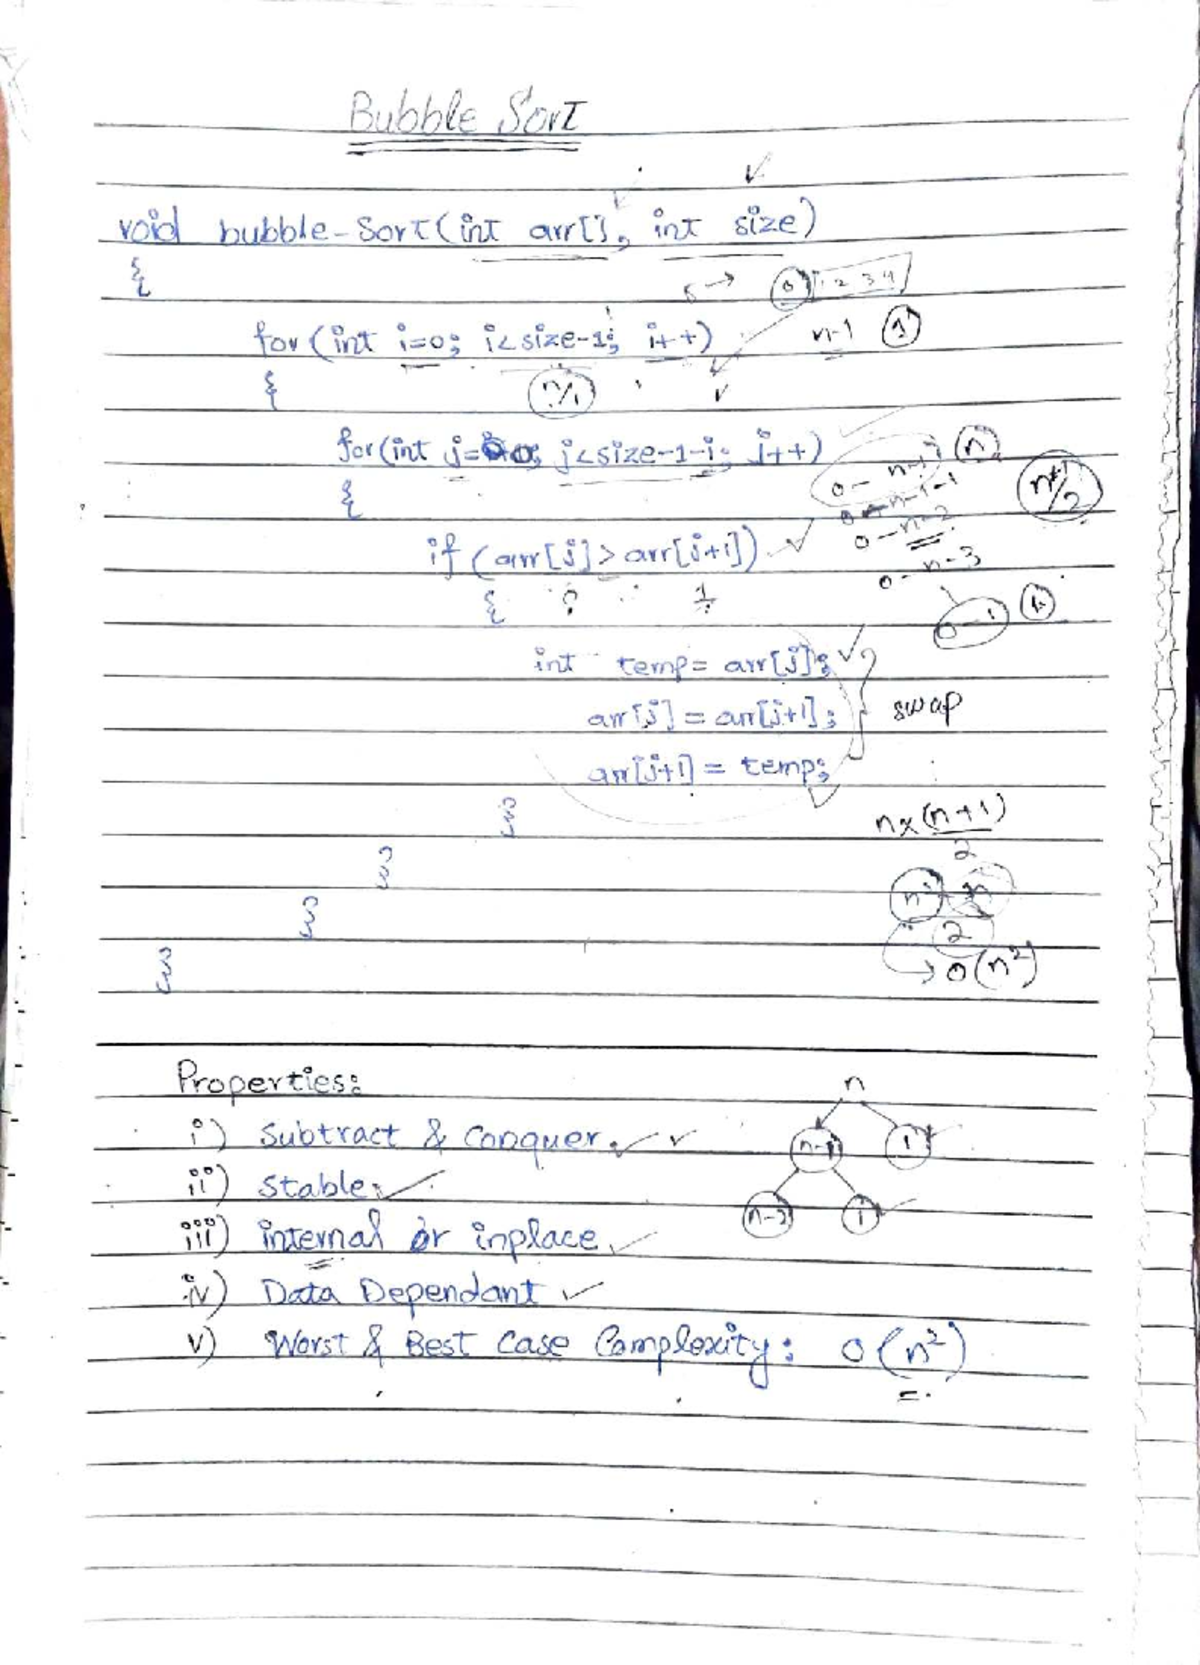 Bubble Sort
void bubble-Sort(int arr[], int size)
{
5 → 0 1 2 3 4
for (int i=0; i<size-1; i++) n-1 1
{ n/1
for(int j=0; j<size-1-i; j++) 0 - n-1 n
{ 0 - n-1-1 n+1/2
if (arr[j]>arr[j+1]) 0 - n-2
0 - n-3
{ 1 0-1
int temp= arr[j];
arr[j] = arr[j+1]; swap
arr[j+1] = temp;
}
n×(n+1)
2
}
n² n
}
2
}
→ O(n²)
Properties: n
i) Subtract & Conquer. n-1 1
ii) Stable. n-2 1
iii) internal or inplace
iv) Data Dependant
v) Worst & Best Case Complexity: O(n²)